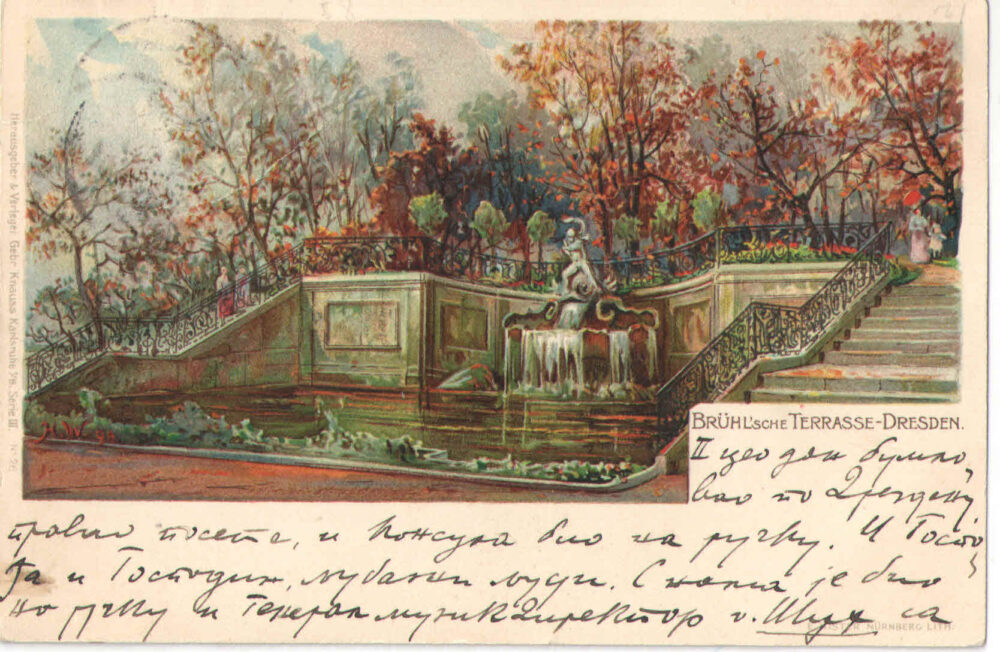 Herausgeber & Verleger Gebr. Knauss Karlsruhe 1/B. Serie III
BRÜHL'SCHE TERRASSE-DRESDEN.
II цео дан булњо-
вао по Дрездену,
правио посете, и Конзула био на ручку. И Госпо-
ђа и Господин, љубазни људи. С нама је био
на ручку и Генерал музикдиректор г. Шух са
NÜRNBERG LITH.